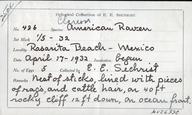 Oological Collection of E. E. SECHRIST
No. 486 Species American Raven
Set Mark 1/5 - 32
Locality Rosarita Beach - Mexico
Date April 17 - 1932 Incubation begun
No. of Eggs 5 Collected by E. E. Sechrist
Nest of sticks, lined with pieces
of rags, and cattle hair, on 40 ft
rocky cliff 12 ft down, on ocean front.